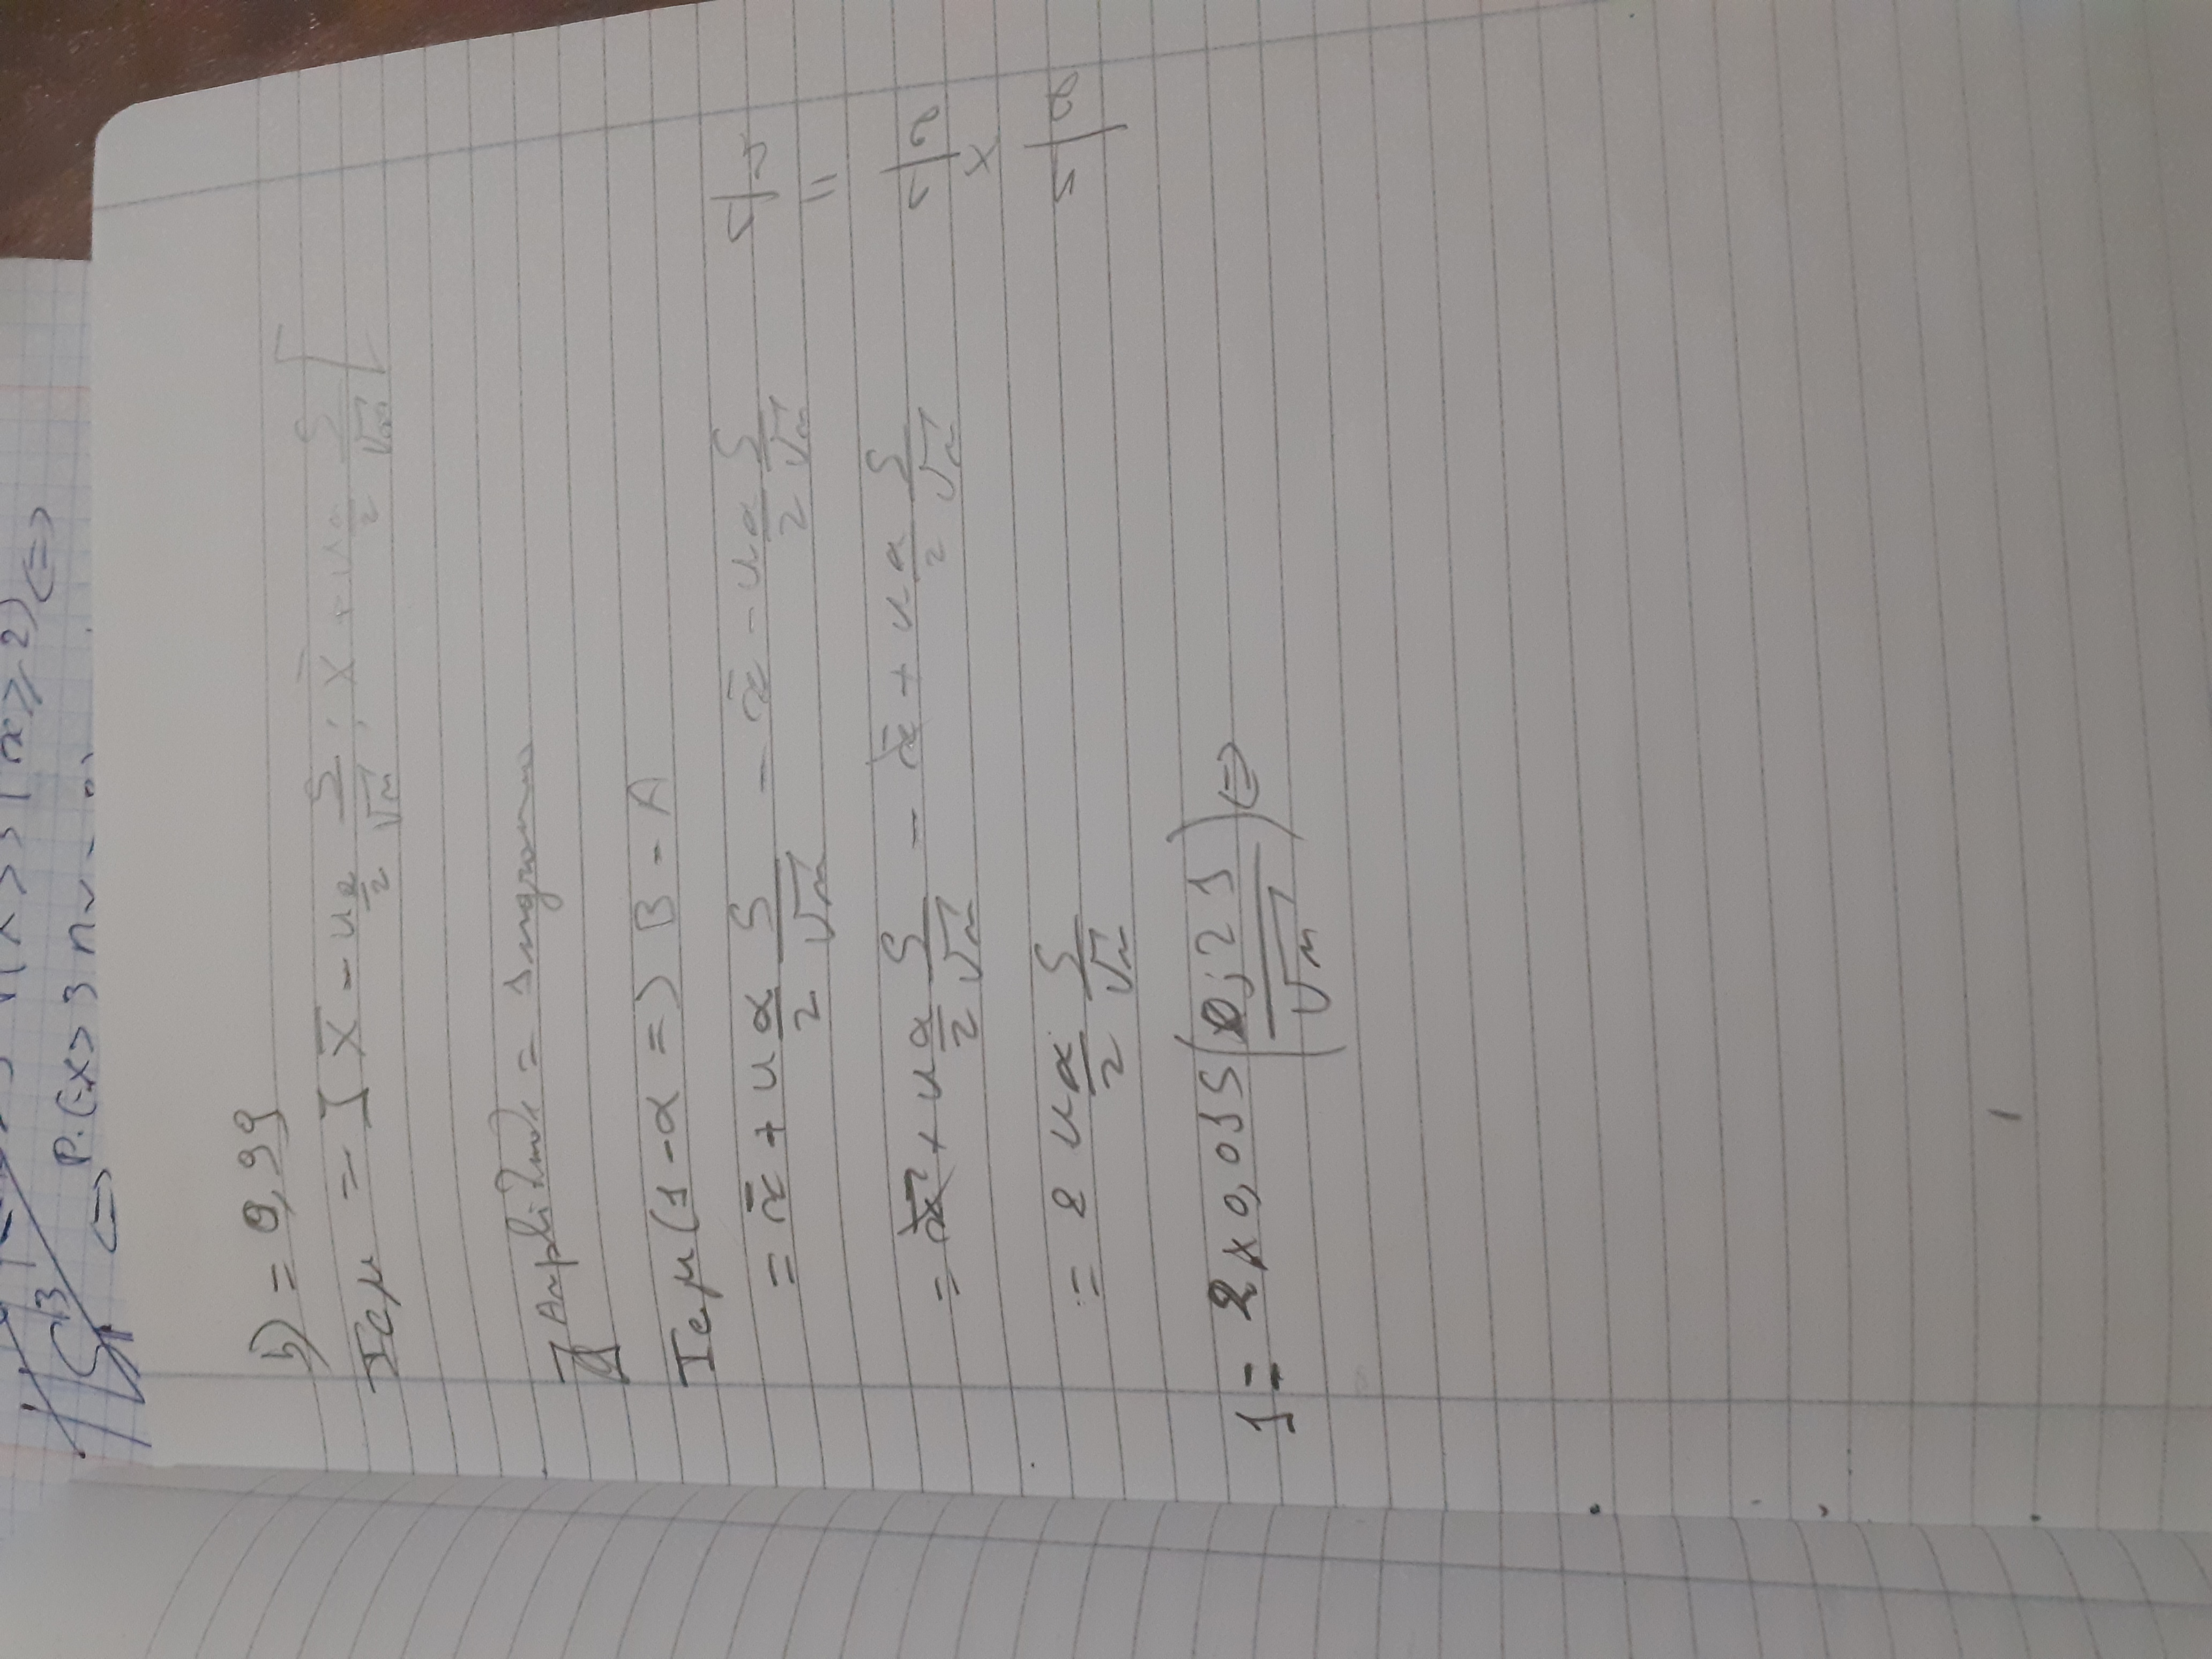 x > 3 | x ≥ 2) <=>
<=> P.(x > 3 n
b) = 0,99
Icμ = ] X̄ - u α/2 S/√n ; X̄ + u α/2 S/√n [
Amplitude =
Icμ (1-α => B - A
= x̄ + u α/2 S/√n - x̄ - u α/2 S/√n
= x̄ + u α/2 S/√n - x̄ + u α/2 S/√n
= 2 u α/2 S/√n
1 = 2 x 0,015 (0,21/√n) <=>